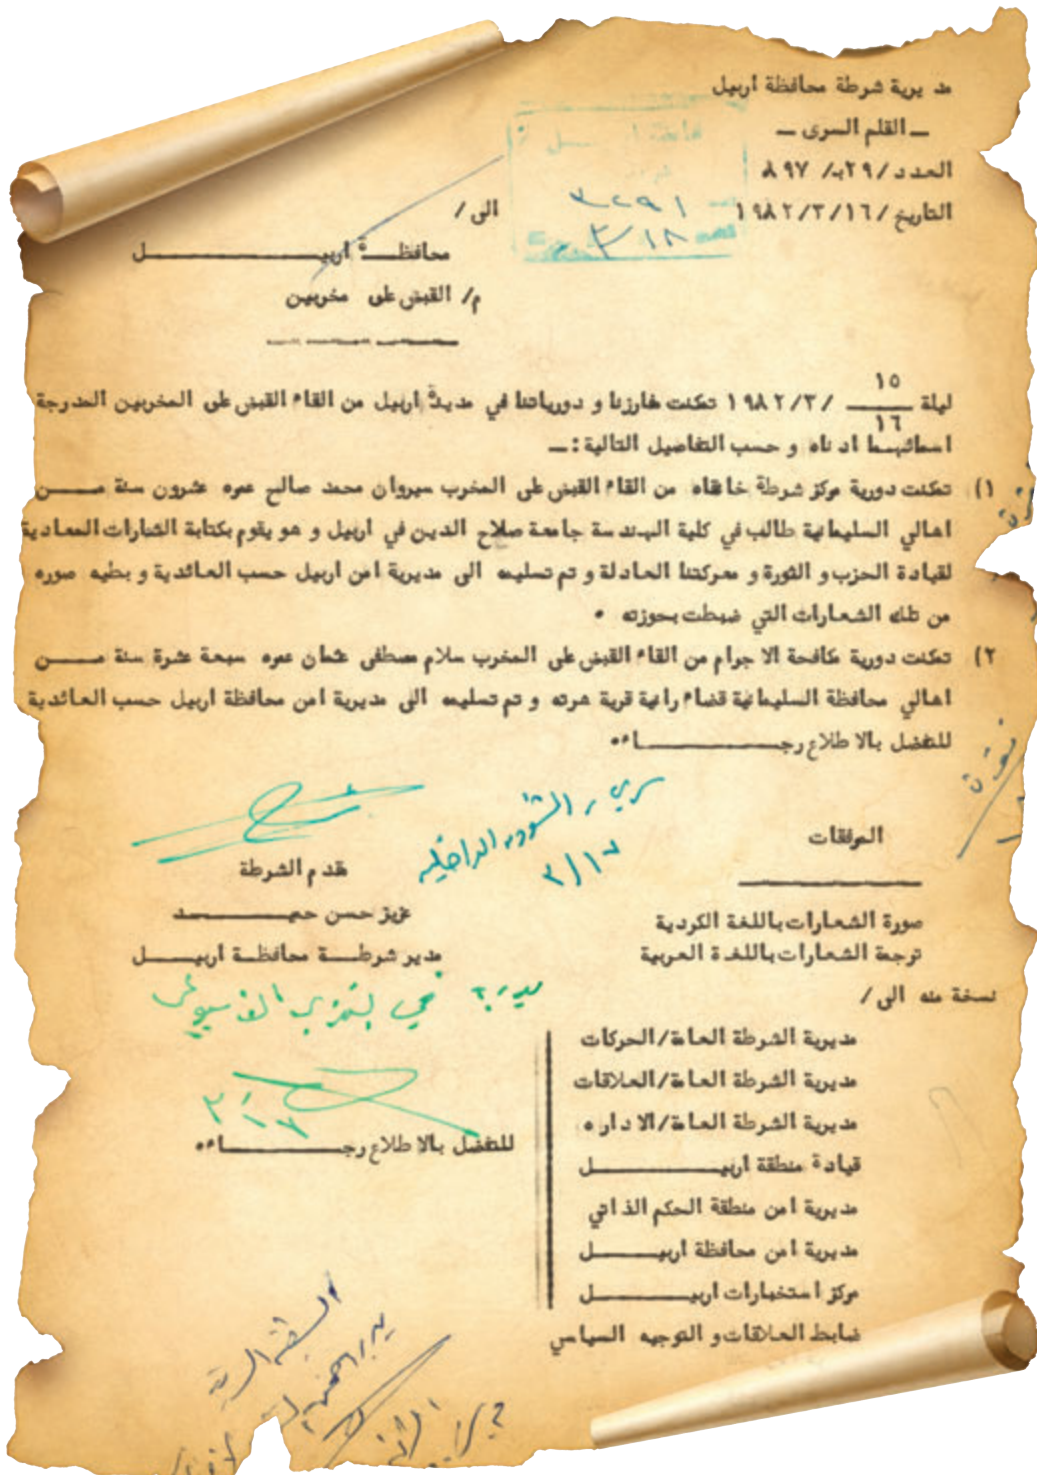 مديرية شرطة محافظة اربيل
ــ القلم السرى ــ
العدد/٢٩ب/ ٨٩٧
التاريخ/١٩٨٢/٣/١٦
٣٢٩١
٣/١٨
الى/
محافظـــة اربيــــــــــــل
م/ القبض على مخربين
ليلة ١٥/١٦ /١٩٨٢/٣ تمكنت مفارزنا و دورياتنا في مدينة اربيل من القاء القبض على المخربين المدرجة
اسمائهمـا ادناه و حسب التفاصيل التالية :ــ
١) تمكنت دورية مركز شرطة خانقاه من القاء القبض على المخرب سيروان محمد صالح عمره عشرون سنة مـــــن
اهالي السليمانية طالب في كلية الهندسة جامعة صلاح الدين في اربيل و هو يقوم بكتابة الشعارات المعادية
لقيادة الحزب و الثورة و معركتنا العادلة و تم تسليمه الى مديرية امن اربيل حسب العائدية و بطيه صوره
من تلك الشعارات التي ضبطت بحوزته ٠
٢) تمكنت دورية مكافحة الاجرام من القاء القبض على المخرب سلام مصطفى عثمان عمره سبعة عشرة سنة مـــــن
اهالي محافظة السليمانية قضاء رانية قرية و تم تسليمه الى مديرية امن محافظة اربيل حسب العائدية
للتفضل بالاطلاع رجــــــــــاء٠٠
الشؤون الداخلية
٣/١٧
المرفقات
صورة الشعارات باللغة الكردية
ترجمة الشعارات باللغـة العربية
مقدم الشرطة
عزيز حسن حميــــــــد
مدير شرطـــة محافظـة اربيـــــل
نسخة منه الى/
مديرية الشرطة العامة/الحركات
مديرية الشرطة العامة/العلاقات
مديرية الشرطة العامة/الاداره
قيادة منطقة اربيــــــــــل
مديرية امن منطقة الحكم الذاتي
مديرية امن محافظة اربيـــــــل
مركز استخبارات اربيــــــــل
ضابط العلاقات و التوجيه السياسي
للتفضل بالاطلاع رجــــــــــاء٠٠
٣/١٧